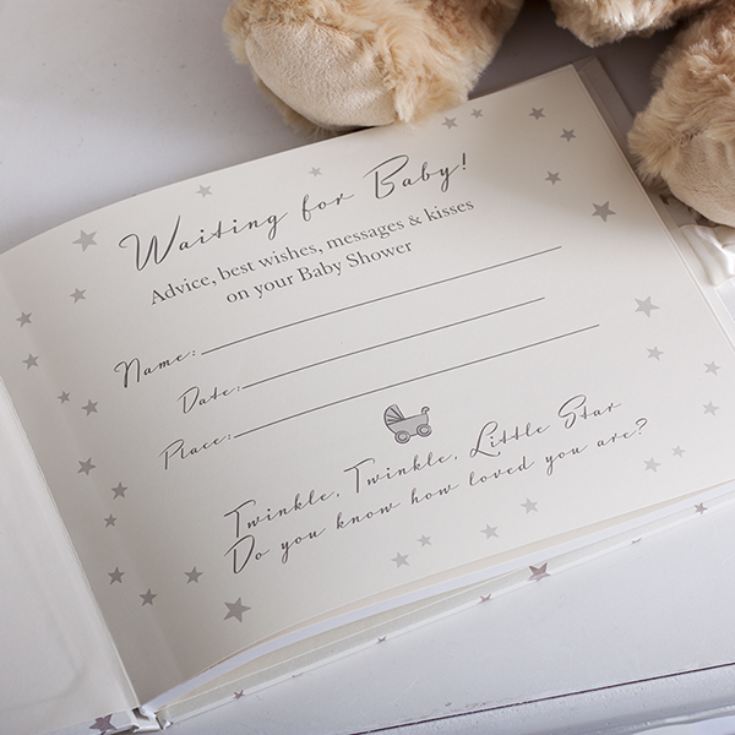 Waiting for Baby!
Advice, best wishes, messages & kisses
on your Baby Shower
Name:
Date:
Place:
Twinkle, Twinkle, Little Star
Do you know how loved you are?